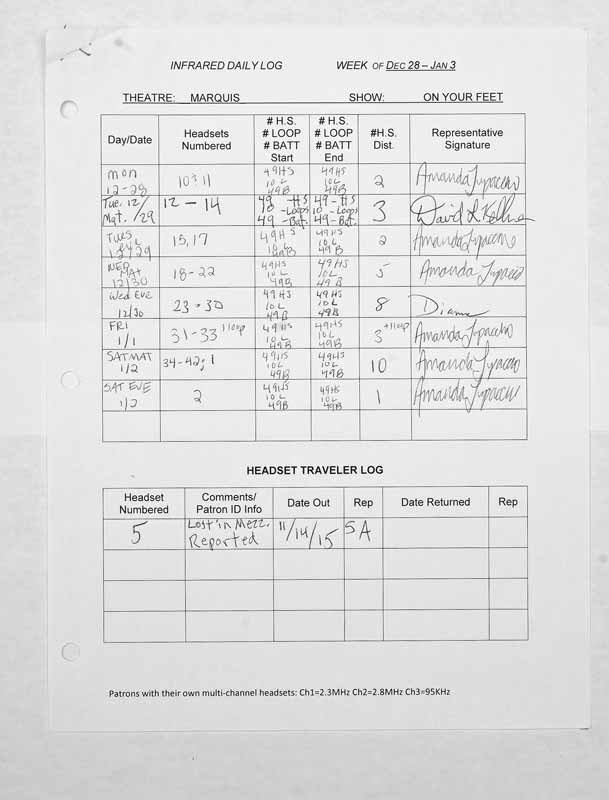 INFRARED DAILY LOG WEEK OF DEC 28 – JAN 3
THEATRE: MARQUIS SHOW: ON YOUR FEET
Day/Date Headsets Numbered # H.S. # LOOP # BATT Start # H.S. # LOOP # BATT End #H.S. Dist. Representative Signature
Mon 12-28 10 & 11 49HS 10 L 49B 49HS 10L 49B 2 Amanda
Tue. 12/ Mat. /29 12 – 14 49 - HS -Loops 49 - Bat. 49 - HS 10 - Loops 49 - Bat. 3 David L.
TUES 12/29 15, 17 49HS 10 L 49B 49HS 10 L 49B 2 Amanda
WED MAT 12/30 18 - 22 49HS 10 L 49B 49HS 10L 49B 5 Amanda
Wed EVE 12/30 23 - 30 49HS 10 L 49B 49HS 10L 49B 8
FRI 1/1 31-33 1 loop 49HS 10 L 49B 49HS 10 L 49B 3 +1loop Amanda
SAT MAT 1/2 34-42; 1 49HS 10 L 49B 49HS 10L 49B 10 Amanda
SAT EVE 1/2 2 49HS 10 L 49B 49HS 10 L 49B 1 Amanda
HEADSET TRAVELER LOG
Headset Numbered Comments/ Patron ID Info Date Out Rep Date Returned Rep
5 Lost in Mezz. Reported 11/14/15 SA
Patrons with their own multi-channel headsets: Ch1=2.3MHz Ch2=2.8MHz Ch3=95KHz